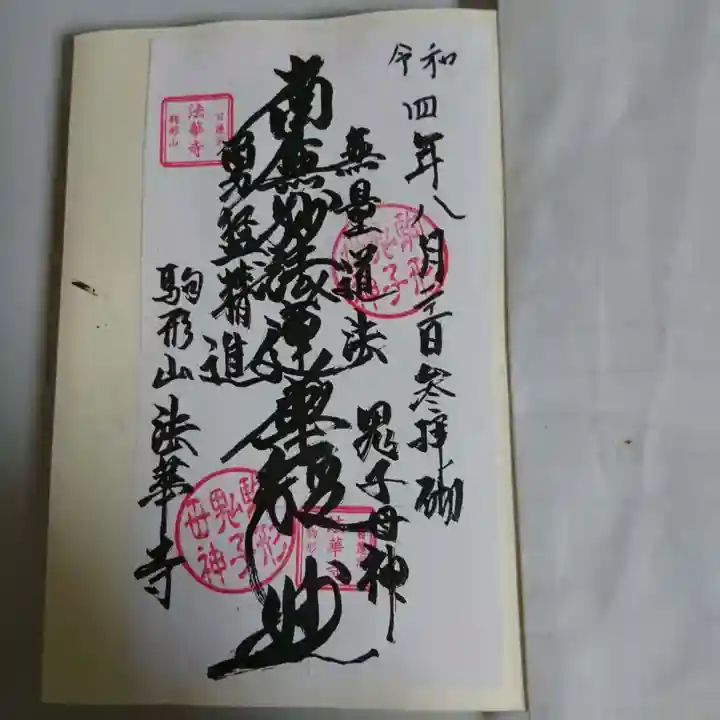 令和四年八月二日参拝砌
無量道法
鬼子母神
南無妙法蓮華経
勇猛精進
駒形山法華寺
法華寺
駒形山
駒形
鬼子母神
法華寺
駒形